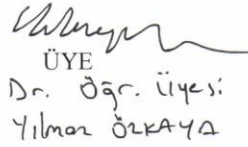 ÜYE
Dr. Öğr. Üyesi
Yılmaz ÖZKAYA